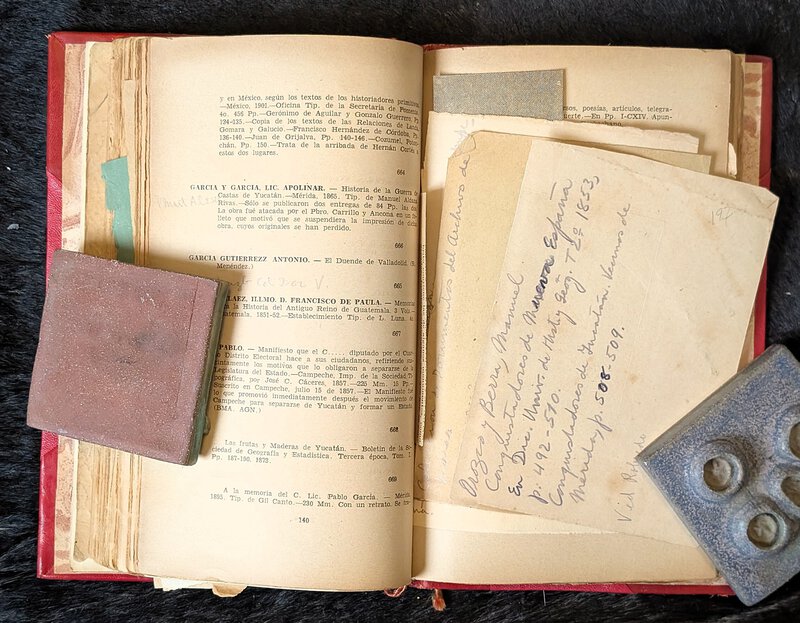 y en México, según los textos de los historiadores primitivos
—México, 1901.—Oficina Tip. de la Secretaría de Fomento
4o. 455 Pp.—Gerónimo de Aguilar y Gonzalo Guerrero, Pp.
124-135.—Copia de los textos de las Relaciones de Landa,
Gomara y Galucio.—Francisco Hernández de Córdoba, Pp.
136-140.—Juan de Grijalva, Pp. 140-146.—Cozumel,
chán. Pp. 150.—Trata de la arribada de Hernán Cortés a
estos dos lugares.
664
GARCIA Y GARCIA, LIC. APOLINAR. — Historia de la Guerra de
Castas de Yucatán.—Mérida, 1865. Tip. de Manuel Aldana
Rivas.—Sólo se publicaron dos entregas de 84 Pp. las dos.
La obra fué atacada por el Pbro. Carrillo y Ancona en un fo-
lleto que motivó que se suspendiera la impresión de dicha
obra, cuyos originales se han perdido.
666
GARCIA GUTIERREZZ ANTONIO. — El Duende de Valladolid. (R.
Menéndez.)
665
LAEZ, ILLMO. D. FRANCISCO DE PAULA. — Memorias
a la Historia del Antiguo Reino de Guatemala. 3 Vols.—
atemala. 1851-52.—Establecimiento Tip. de L. Luna.
667
PABLO. — Manifiesto que el C..... diputado por el Cuar-
o Distrito Electoral hace a sus ciudadanos, refiriendo
ntamente los motivos que lo obligaron a separarse de
Legislatura del Estado.—Campeche, Imp. de la Sociedad Ti-
pográfica, por José C. Cáceres, 1857.—225 Mm. 15 Pp.—
Suscrito en Campeche, julio 15 de 1857.—El Manifiesto fué
lo que promovió inmediatamente después el movimiento de
Campeche para separarse de Yucatán y formar un Estado
(BMA. AGN.)
668
Las frutas y Maderas de Yucatán. — Boletín de la So-
ciedad de Geografía y Estadística. Tercera época. Tom. I.
Pp. 187-190. 1873.
669
A la memoria del C. Lic. Pablo García. — Mérida
1895. Tip. de Gil Canto.—230 Mm. Con un retrato. Se
140
rsos, poesías, artículos, telegra-
uerte.—En Pp. I-CXIV. Apun-
Documentos del Archivo de
92
Orozco y Berra, Manuel
Conquistadores de Nueva España
En Dicc. Univ. de Hist y Geog. T 2º 1853,
p. 492-510.
Conquistadores de Yucatán. Vecinos de
Mérida, p. 508-509.